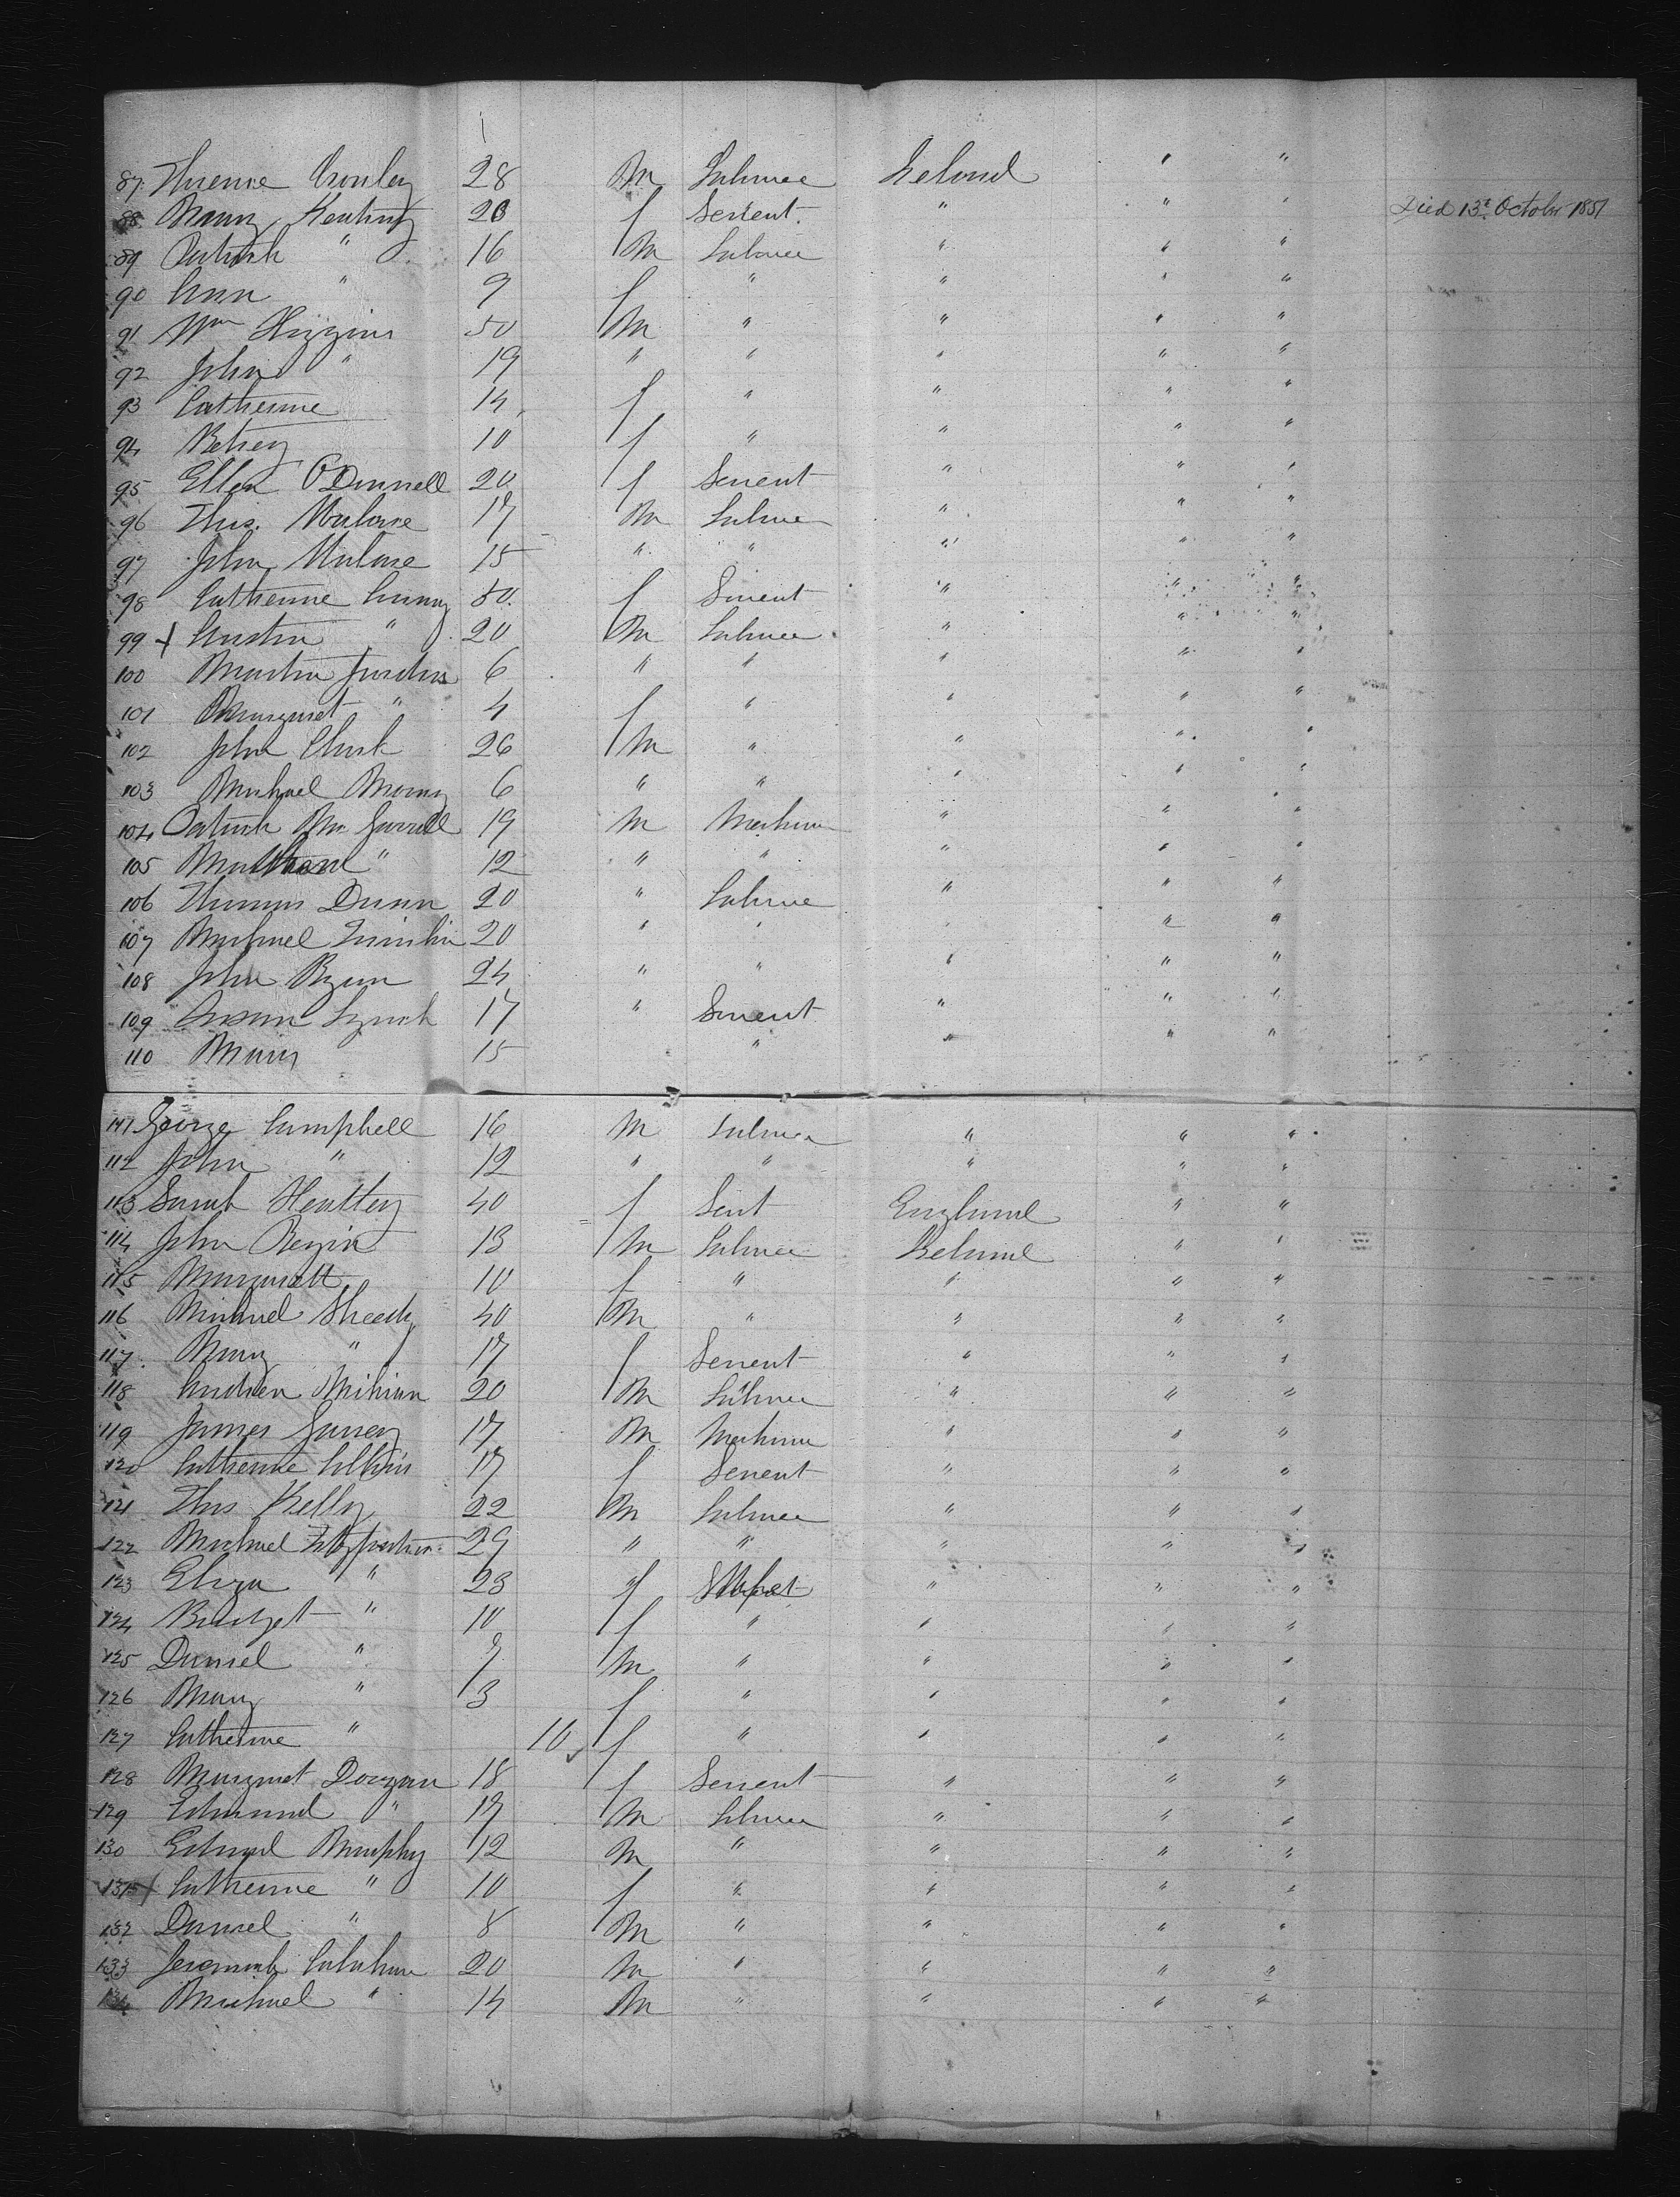 87 Thrence Cronley 28 M Labourer Ireland " "
88 Mary Keating 20 f Servent " " " Died 13th October 1851
89 Patrick " 16 M Labourer " " "
90 Ann " 9 f " " " "
91 Wm Higgins 50 M " " " "
92 John " 19 " " " " "
93 Catherine 14 f " " " "
94 Betsey 10 f " " " "
95 Ellen O'Donnell 20 f Servent " " "
96 Thos. Malone 17 M Labourer " " "
97 John Malone 15 " " " " "
98 Catherine 50 f Servent " " "
99 + Austin " 20 M Labourer " " "
100 Martin Jordan 6 " " " " "
101 Margaret " 4 f " " " "
102 John Clark 26 M " " " "
103 Michael 6 " " " " "
104 Patrick Mc 19 M Mechanic " " "
105 " 12 " " " " "
106 Thomas Dunn 20 " Labourer " " "
107 Michael 20 " " " " "
108 John Ryan 24 " " " " "
109 Susan Lynch 17 " Servent " " "
110 Mary 15 " " " "
111 George Campbell 16 M Labourer " " "
112 John " 12 " " " " "
113 Sarah Heatley 40 f Sevt England " "
114 John Regin 13 M Labourer Ireland " "
115 Margarett 10 f " " " "
116 Michael Sheedy 40 M " " " "
117 Mary " 17 f Servent " " "
118 Andrew Mihian 20 M Labourer " " "
119 James 17 M Mechanic " " "
120 Catherine Collins 17 f Servent " " "
121 Thos Kelly 22 M Labourer " " "
122 Michael 29 " " " " "
123 Eliza " 23 f " " "
124 Bridget " 10 f " " " "
125 Daniel " 7 M " " " "
126 Mary " 3 f " " " "
127 Catherine " 10 f " " " "
128 Margaret Dorgan 18 f Servent " " "
129 Edmund " 17 M Labourer " " "
130 Edward Murphy 12 M " " " "
131 + Catherine " 10 f " " " "
132 Daniel " 8 M " " " "
133 Jeremiah Calahan 20 M " " " "
134 Michael " 14 M " " " "